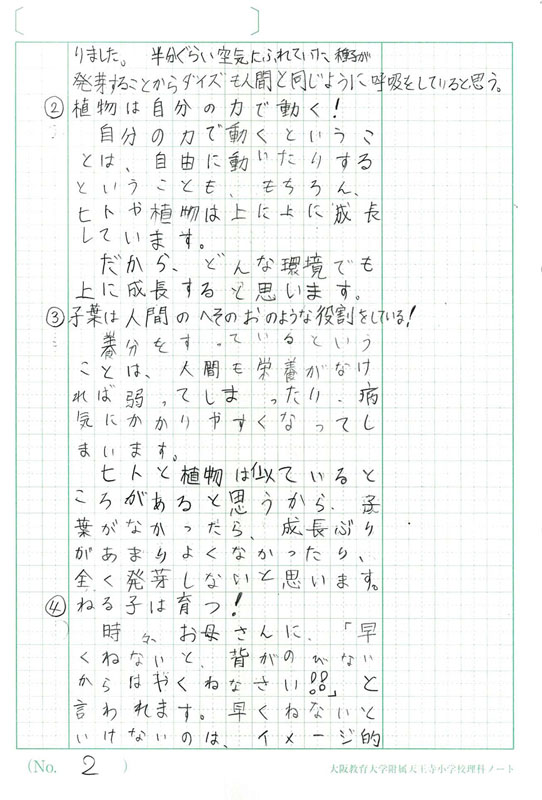 りました。半分ぐらい空気にふれていた種子が
発芽することからダイズも人間と同じように呼吸をしていると思う。
②植物は自分の力で動く!
自分の力で動くというこ
とは、自由に動いたりする
ということも、もちろん、
ヒトや植物は上に上に成長
しています。
だから、どんな環境でも
上に成長すると思います。
③子葉は人間のへそのおのような役割をしている!
養分をすっているという
ことは、人間も栄養がなけ
れば弱ってしまったり、病
気にかかりやすくなってし
まいます。
ヒトと植物は似ていると
ころがあると思うから、子
葉がなかったら、成長ぶり
があまりよくなかったり、
全く発芽しないと思います。
④ねる子は育つ!
時々、お母さんに、「早
くねないと、背がのびない
からはやくねなさい!!」と
言われます。早くねないと
いけないのは、イメージ的
(No. 2 )
大阪教育大学附属天王寺小学校理科ノート